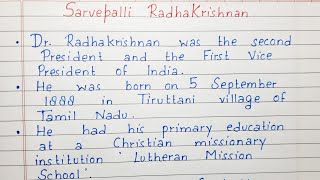 Sarvepalli RadhaKrishnan
• Dr. Radhakrishnan was the second
President and the First Vice
President of India.
• He was born on 5 September
1888 in Tiruttani village of
Tamil Nadu.
• He had his primary education
at a Christian missionary
institution ' Lutheran Mission
School'.